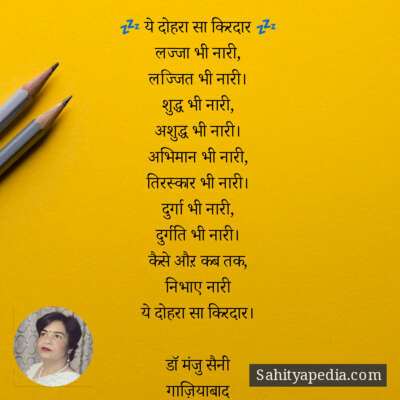 💤 ये दोहरा सा किरदार 💤
लज्जा भी नारी,
लज्जित भी नारी।
शुद्ध भी नारी,
अशुद्ध भी नारी।
अभिमान भी नारी,
तिरस्कार भी नारी।
दुर्गा भी नारी,
दुर्गति भी नारी।
कैसे औऱ कब तक,
निभाए नारी
ये दोहरा सा किरदार।
डॉ मंजु सैनी
गाज़ियाबाद
Sahityapedia.com